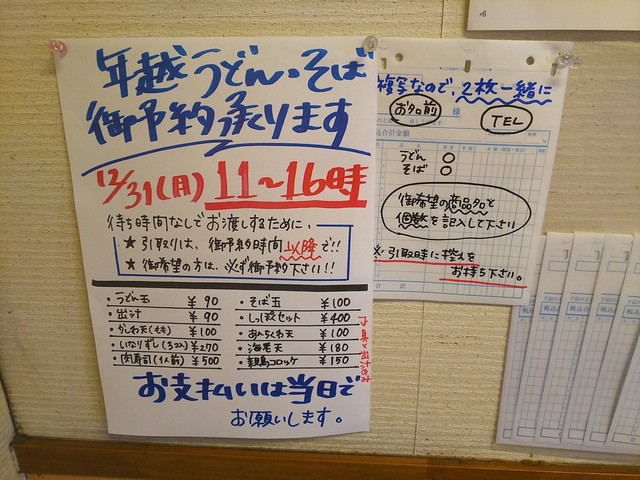 年越うどん・そば
御予約承ります
12/31(月) 11〜16時
待ち時間なしでお渡しするために、
★ 引取りは、御予約時間以降で!!
★ 御希望の方は、必ず御予約下さい!!
・うどん玉 ¥90
・出汁 ¥90
・かしわ天(もも) ¥100
・いなりずし(3コ入) ¥270
・肉寿司(1人前) ¥500
・そば玉 ¥100
・しっぽくセット ¥400
・ちくわ天 ¥100
・海老天 ¥180
・親鳥コロッケ ¥150
お支払いは当日で
お願いします。
複写なので、2枚一緒に
お名前 様 TEL
税込合計金額
うどん ○
そば ○
御希望の商品名と
個数を記入して下さい
※引取時に控えを
お持ち下さい。
合計